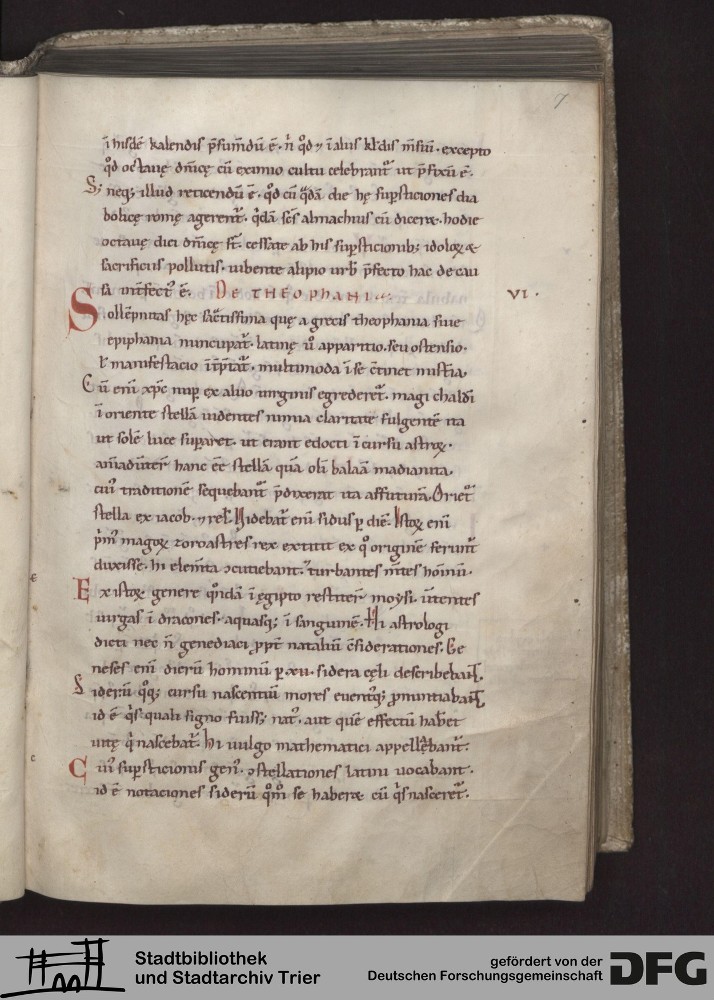 7
ī hisdē kalendis p̄sumdū ē. n̄ qd̄ ⁊ ī aliis kl̄dis m̄siū. excepto
qd̄ octauę dn̄icę cū eximio cultu celebrant᷑ ut p̄fixū ē.
S; neq; illud reticendū ē. qd̄ cū q̄dā die hę sup̄sticiones dia
bolicę romę agerent᷑. q̄dā sc̄s almachius cū dicer&. hodie
octauę diei dn̄icę st̄. cessate ab his sup̄sticionib; idoloꝝ &
sacrificiis pollutis. iubente alipio urb̄ p̄fecto hac de cau
sa int̄fect᷒ ē. DE THEOPHANIA.
VI.
Sollēpnitas hęc sac̄tissima quę a grecis theophania siue
epiphania nuncupat᷑. latinę ū apparitio. seu ostensio.
ł manifestacio īt̄p̄tat᷑. multimoda ī se c̄tinet mist̄ia.
Cū enī xp̄c nup̄ ex aluo uirginis egrederet᷑. magi chaldei
ī oriente stellā uidentes nimia claritate fulgentē ita
ut solē luce sup̄aret. ut erant edocti ī cursu astroꝝ.
aīaduert̄ hanc eē stellā quā olī balaā madianita,
cui᷒ traditionē sequebant᷑ p̄dixerat ita affuturā. Oriet᷑
stella ex iacob. ⁊ rel̄. Videbat᷑ enī sidus ꝑ diē. Istoꝝ enī
p̄m᷒ magoꝝ zoroastres rex extitit ex q̊ originē ferunt᷑
duxisse. hi elem̄ta ↄcutiebant. turbantes m̄tes hominū.
Ex istoꝝ genere q̊ndā ī ęgipto restiter̄ moysi. ūtentes
uirgas ī dracones. aquasq; ī sanguinē. Hi astrologi
dicti nec n̄ genediaci ꝓpt̄ nataliū c̄siderationes. Ge
neses enī dierū hominū ꝑ xii. sidera cęli describebant.
Siderū q̊q; cursu nascentiū mores euentq; ꝓnuntiabant.
id ē q̄s quali signo fuiss; nat᷒. aut quē effectū haber&
uitę q̄ nascebat᷑. Hi uulgo mathematici appellebant᷑.
Cui᷒ sup̄sticionis gen᷒. ↄstellationes latini uocabant.
id ē notaciones siderū q̊m̊ se haber& cū q̄s nasceret᷑.
Stadtbibliothek
und Stadtarchiv Trier
gefördert von der
Deutschen Forschungsgemeinschaft
DFG